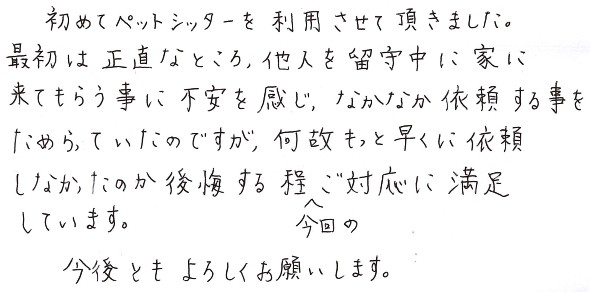 初めてペットシッターを利用させて頂きました。
最初は正直なところ、他人を留守中に家に
来てもらう事に不安を感じ、なかなか依頼する事を
ためらっていたのですが、何故もっと早くに依頼
しなかったのか後悔する程ご対応に満足
しています。
今回の
今後ともよろしくお願いします。